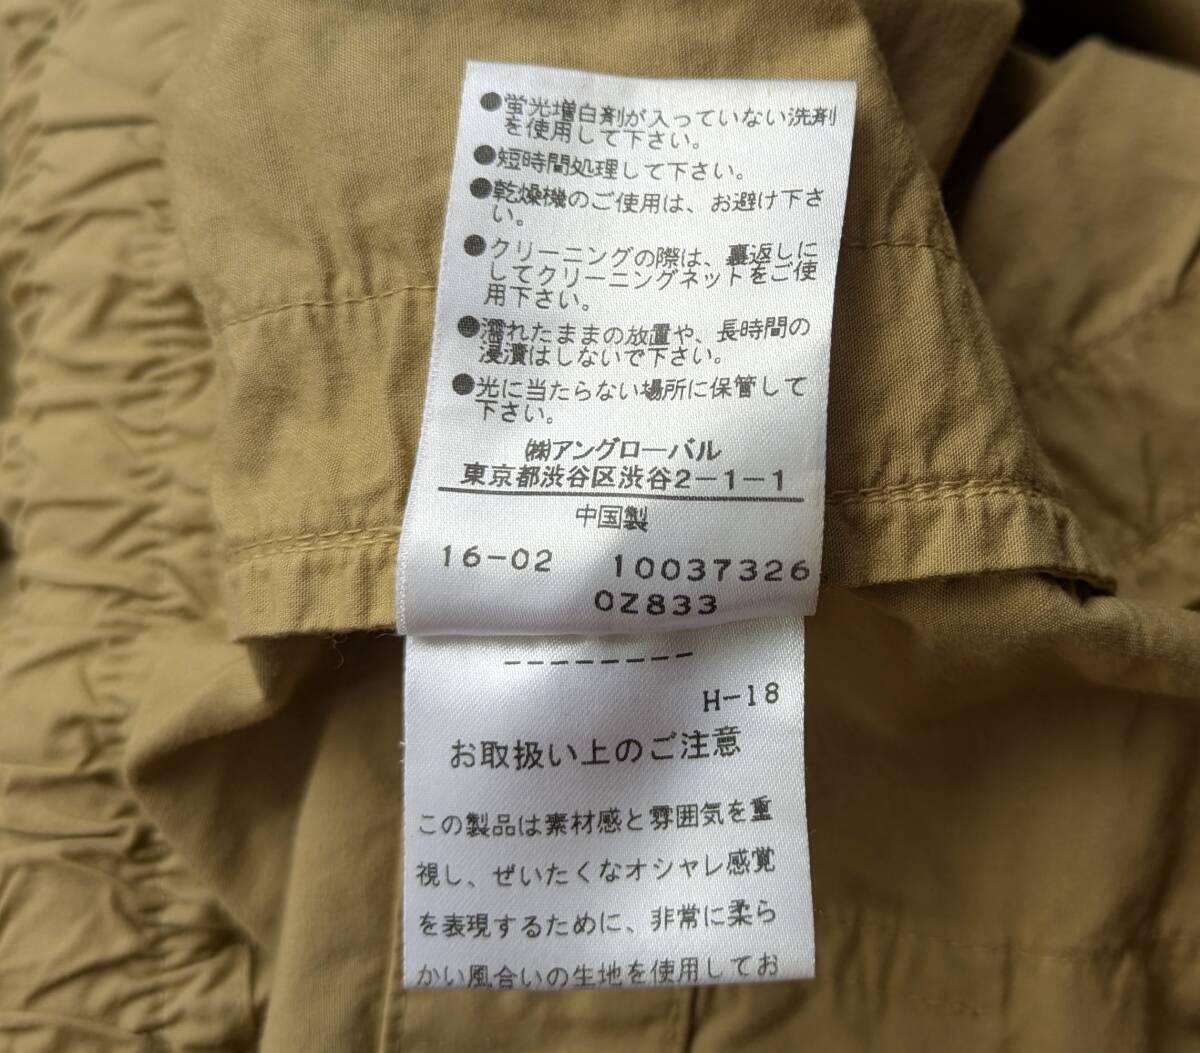 ●蛍光増白剤が入っていない洗剤
を使用して下さい。
●短時間処理して下さい。
●乾燥機のご使用は、お避け下さ
い。
●クリーニングの際は、裏返しに
してクリーニングネットをご使
用下さい。
●濡れたままの放置や、長時間の
浸漬はしないで下さい。
●光に当たらない場所に保管して
下さい。
㈱アングローバル
東京都渋谷区渋谷2-1-1
中国製
16-02 10037326
OZ833
--------
H-18
お取扱い上のご注意
この製品は素材感と雰囲気を重
視し、ぜいたくなオシャレ感覚
を表現するために、非常に柔ら
かい風合いの生地を使用してお